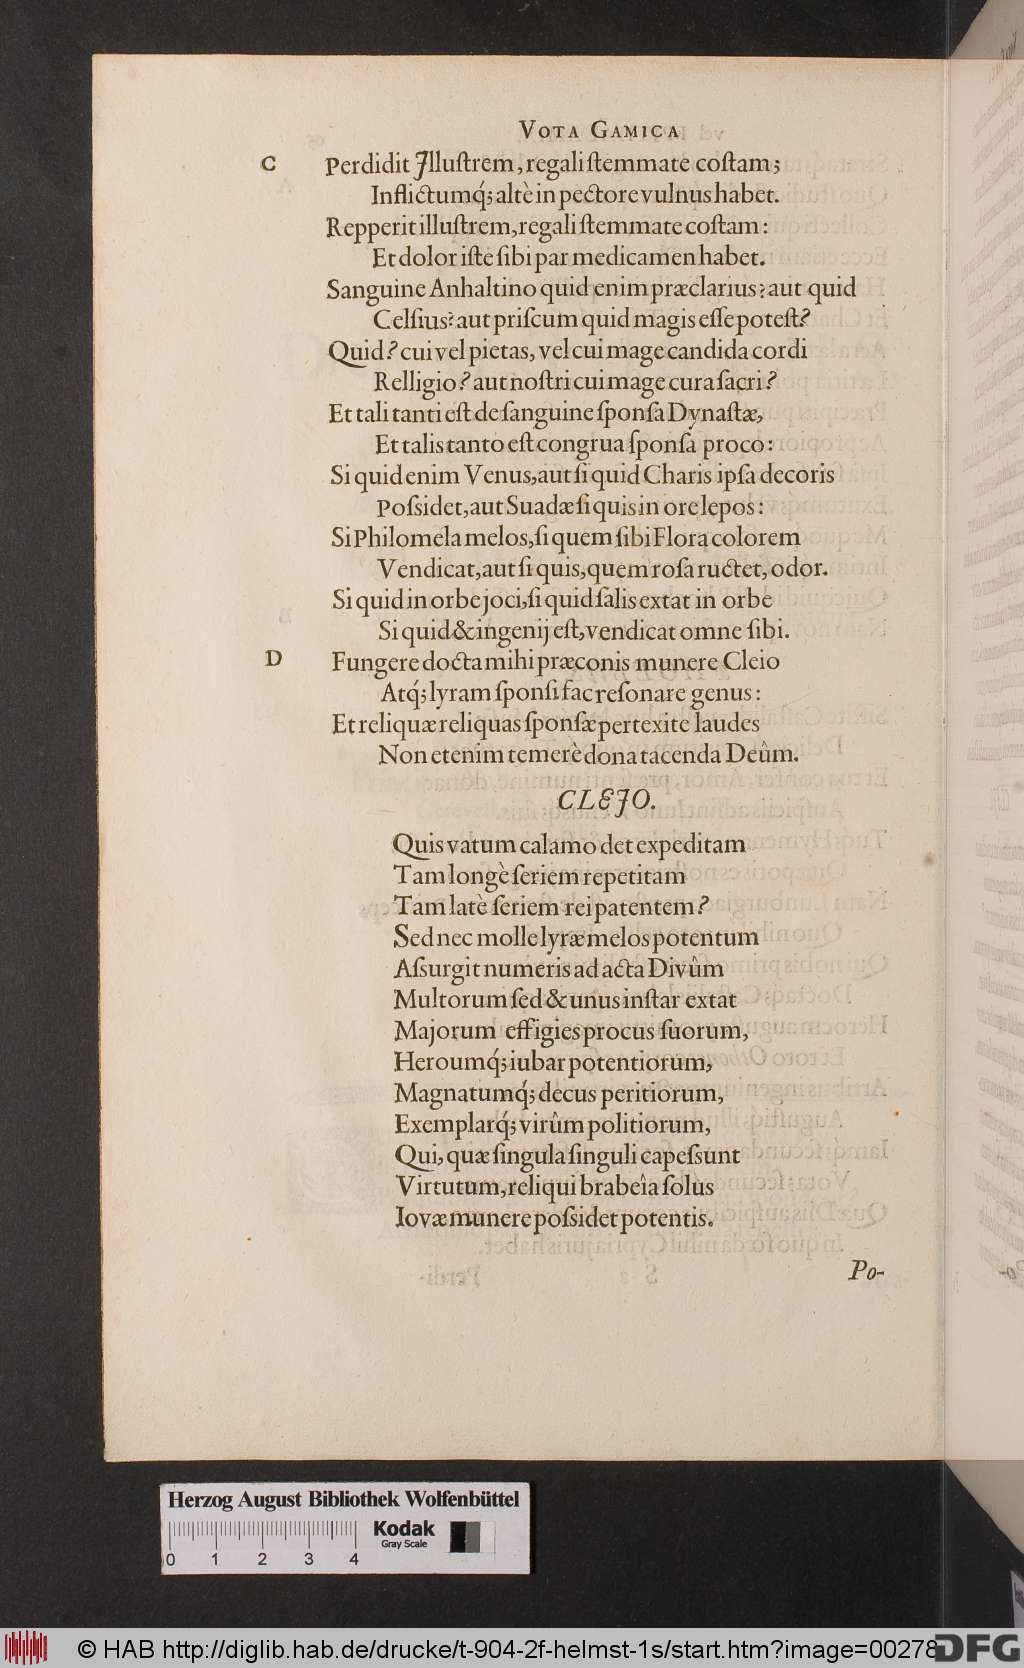 VOTA GAMICA
C Perdidit Illuſtrem, regali ſtemmate coſtam;
Inflictumq́; altè in pectore vulnus habet.
Repperit illuſtrem, regali ſtemmate coſtam:
Et dolor iſte ſibi par medicamen habet.
Sanguine Anhaltino quid enim præclarius? aut quid
Celſius? aut priſcum quid magis eſſe poteſt?
Quid? cui vel pietas, vel cui mage candida cordi
Relligio? aut noſtri cui mage cura ſacri?
Et tali tanti eſt de ſanguine ſponſa Dynaſtæ,
Et talis tanto eſt congrua ſponſa proco:
Si quid enim Venus, aut ſi quid Charis ipſa decoris
Poſsidet, aut Suadæ ſi quis in ore lepos:
Si Philomela melos, ſi quem ſibi Flora colorem
Vendicat, aut ſi quis, quem roſa ructet, odor.
Si quid in orbe joci, ſi quid ſalis extat in orbe
Si quid & ingenij eſt, vendicat omne ſibi.
D Fungere docta mihi præconis munere Cleio
Atq́; lyram ſponſi fac reſonare genus:
Et reliquæ reliquas ſponſæ pertexite laudes
Non etenim temerè dona tacenda Deûm.
CLEJO.
Quis vatum calamo det expeditam
Tam longè ſeriem repetitam
Tam latè ſeriem rei patentem?
Sed nec molle lyræ melos potentum
Aſsurgit numeris ad acta Divûm
Multorum ſed & unus inſtar extat
Majorum effigies procus ſuorum,
Heroumq́; iubar potentiorum,
Magnatumq́; decus peritiorum,
Exemplarq́; virûm politiorum,
Qui, quæ ſingula ſinguli capeſsunt
Virtutum, reliqui brabeîa ſolus
Iovæ munere poſsidet potentis.
Po-
Herzog August Bibliothek Wolfenbüttel
Kodak
Gray Scale
0 1 2 3 4
© HAB http://diglib.hab.de/drucke/t-904-2f-helmst-1s/start.htm?image=00278
DFG